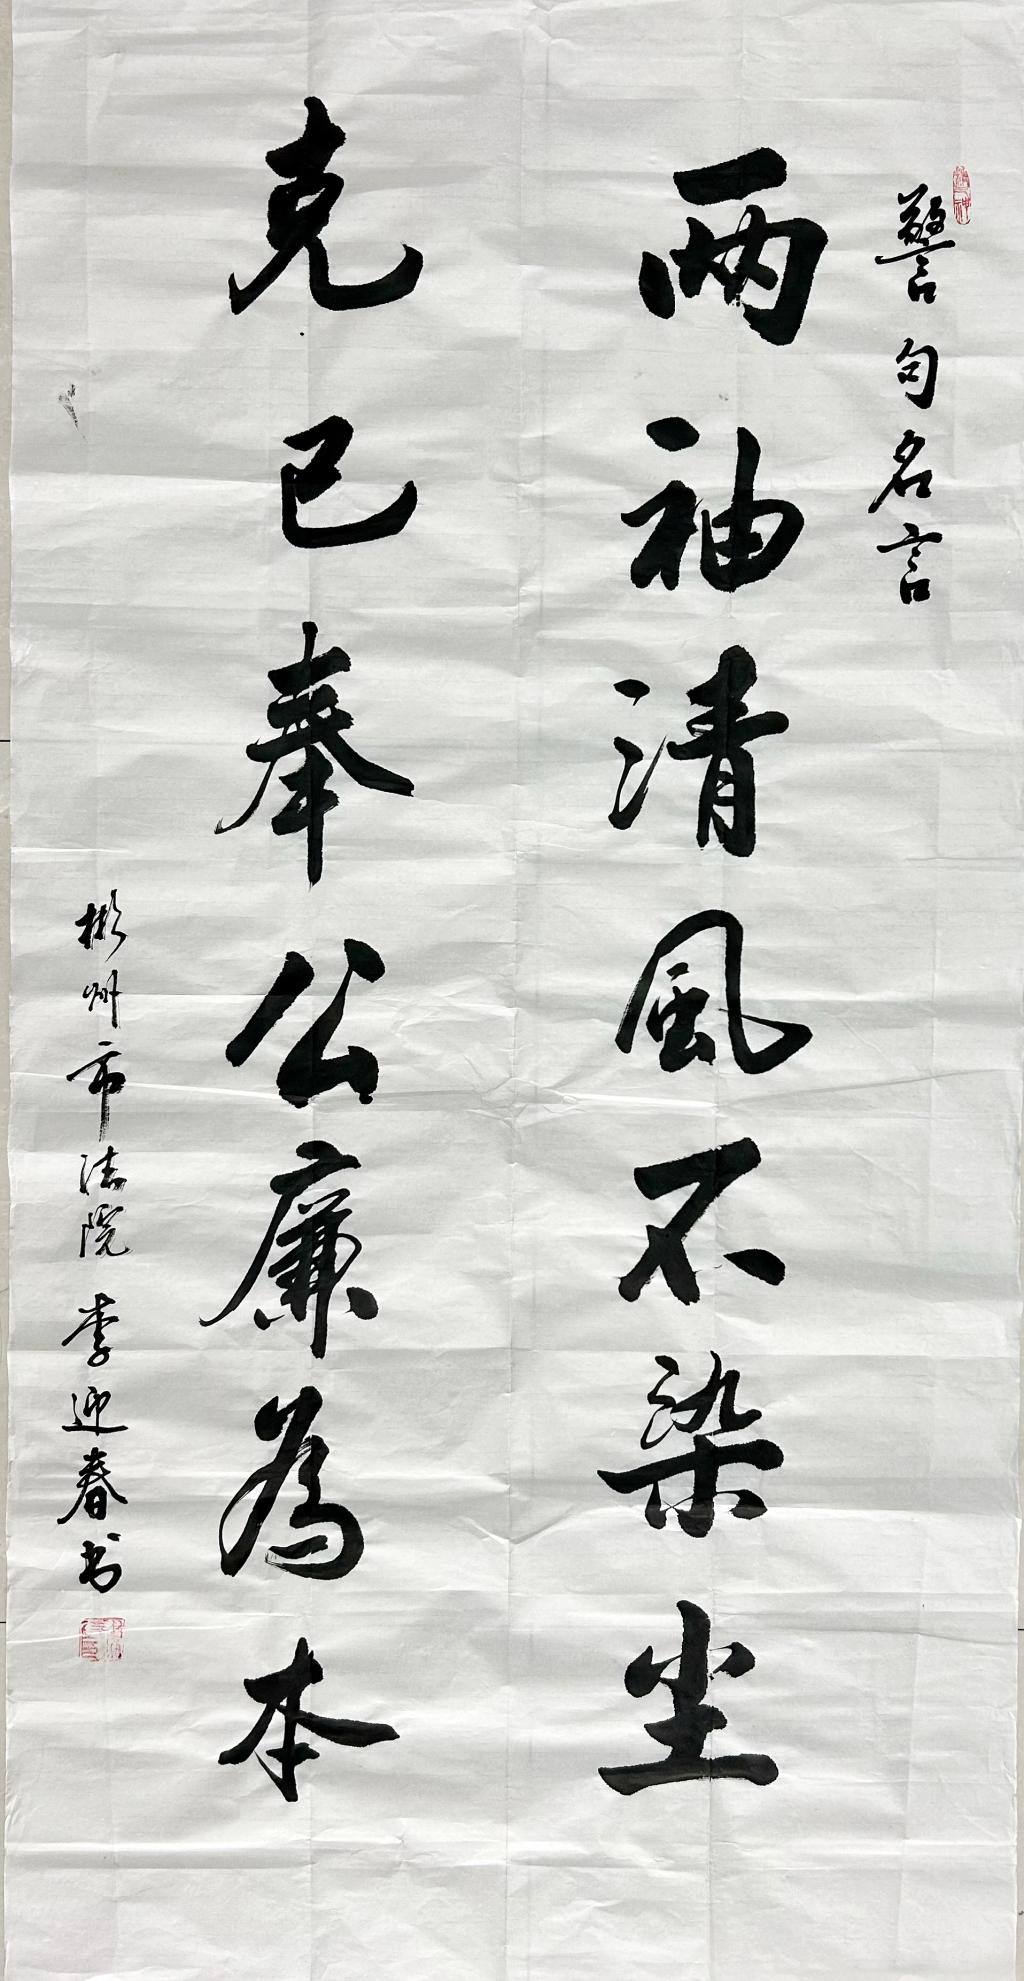 警句名言
兩袖清風不染尘
克己奉公廉為本
彬州市法院 李迎春书